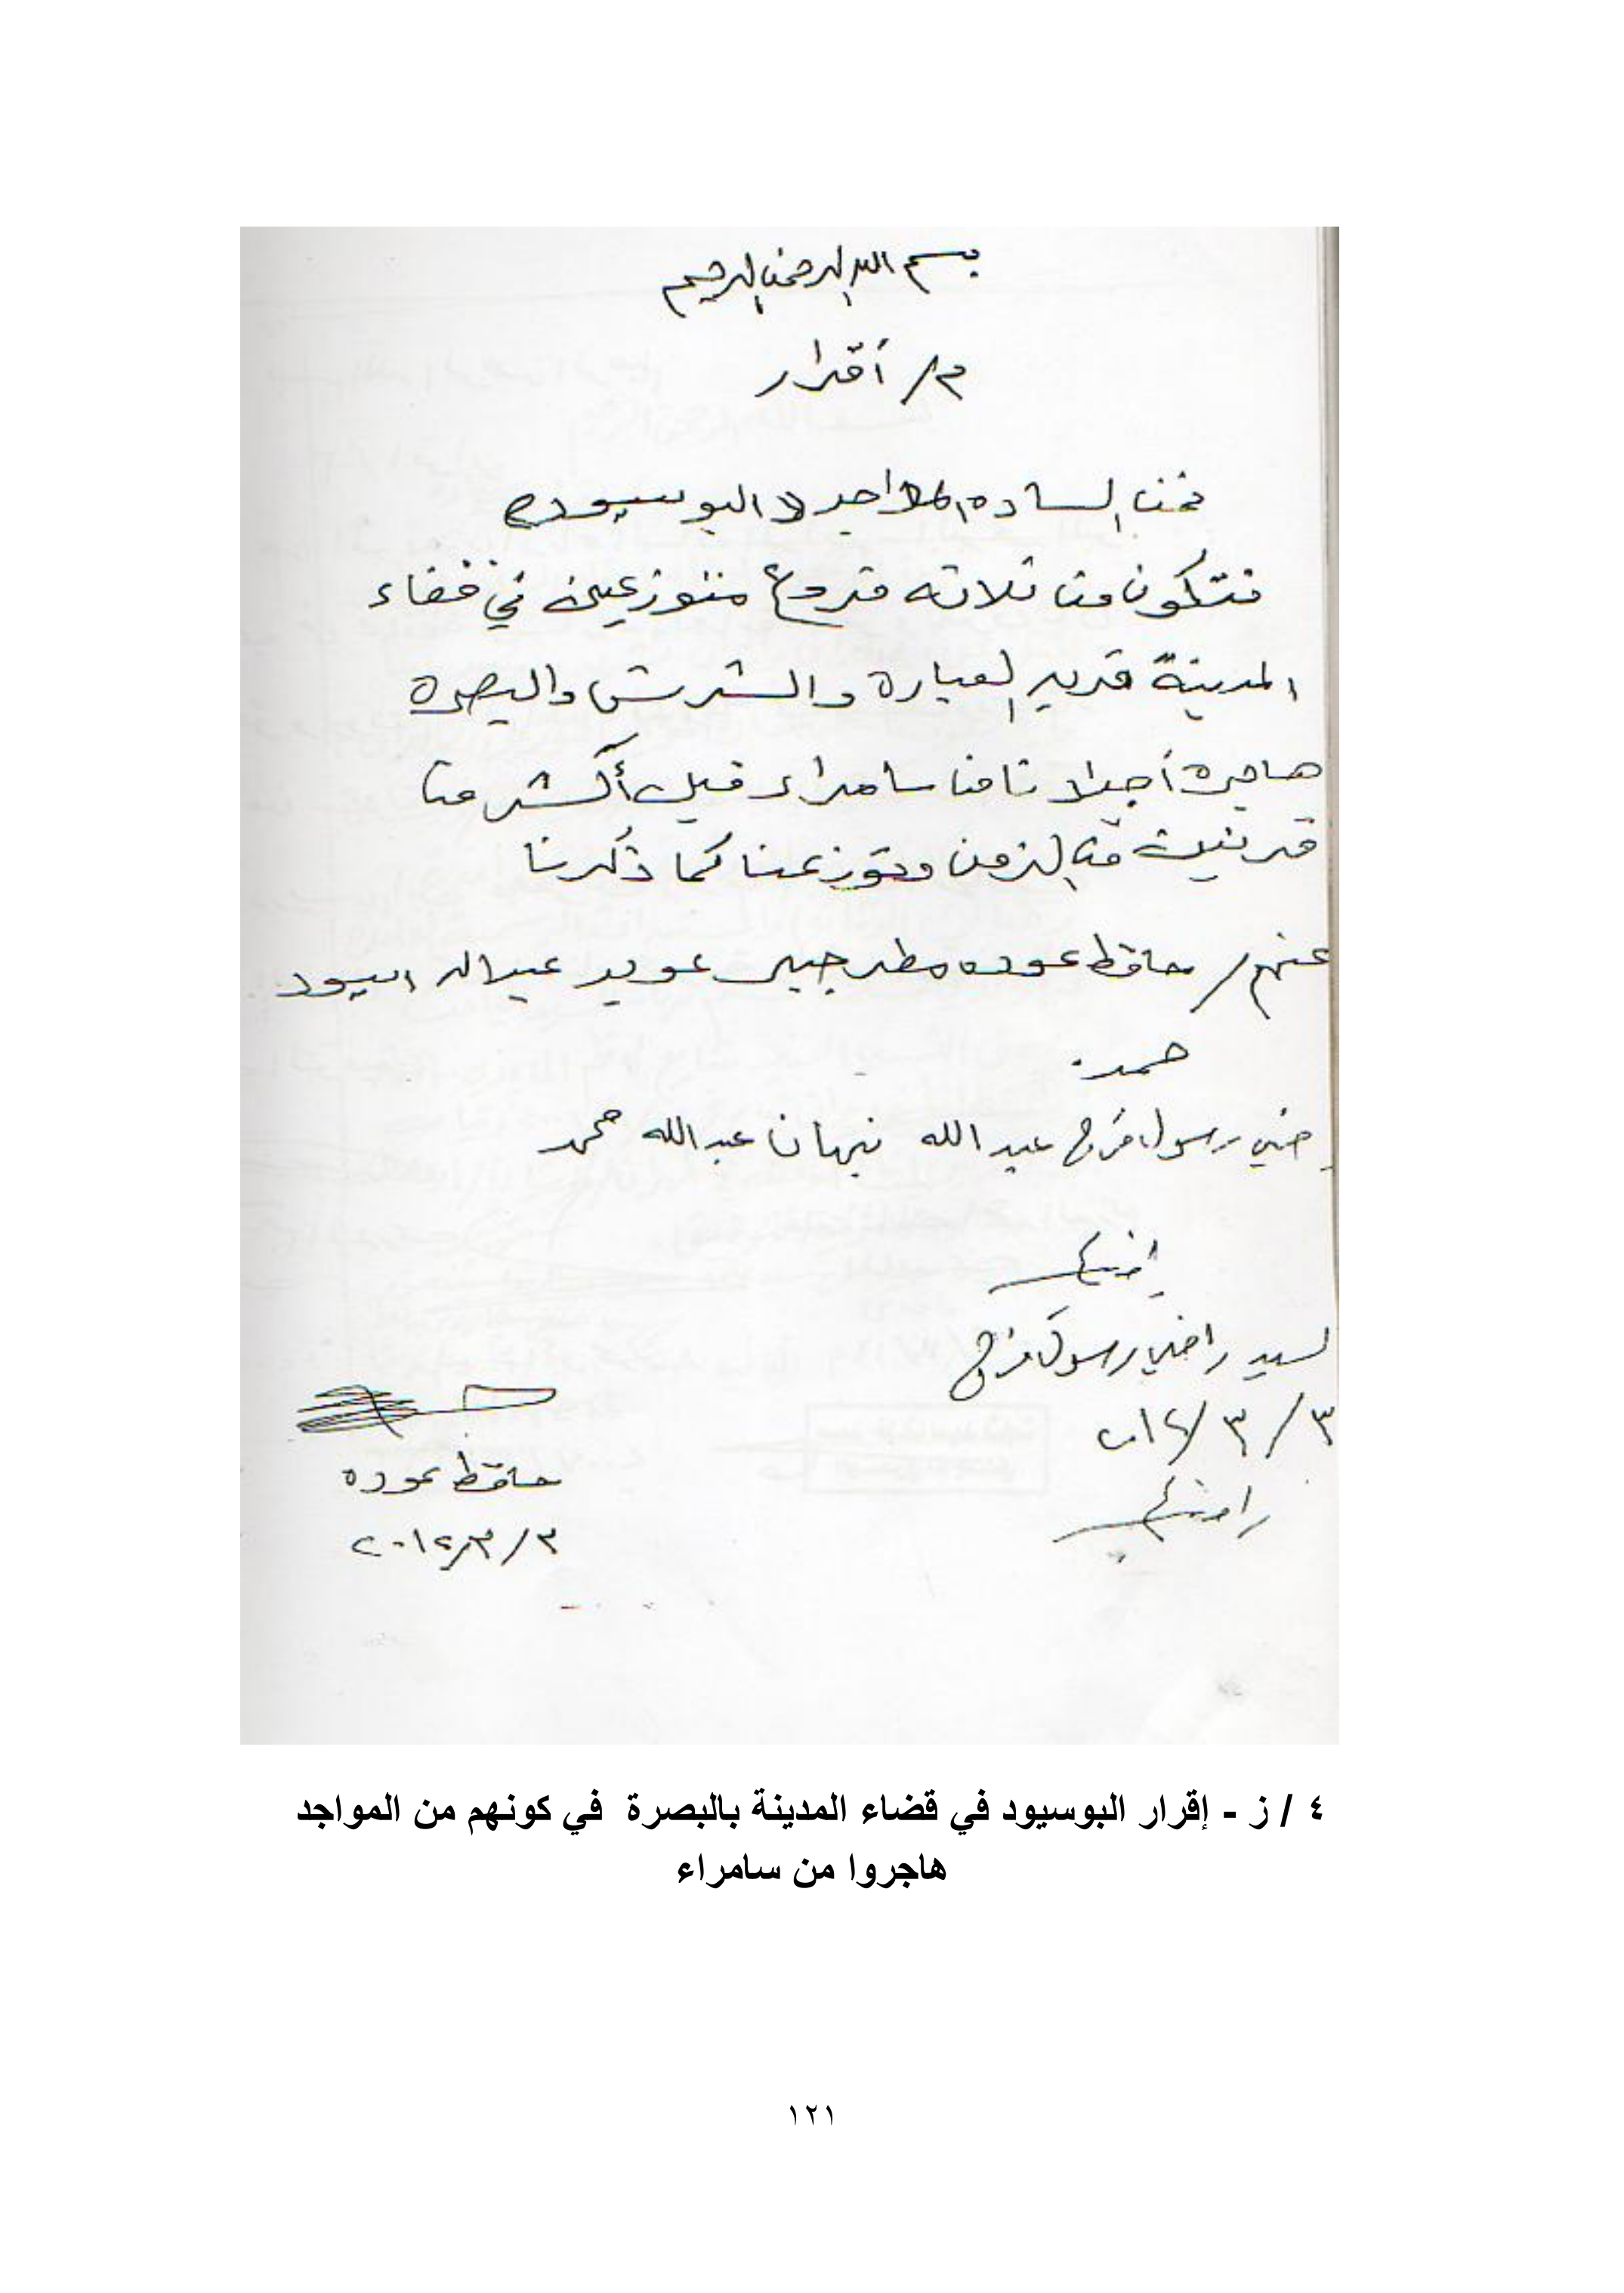 بسم الله الرحمن الرحيم
م/ أقرار
نحن الساده المواجد (البوسيود)
نتكون من ثلاثه فروع متوزعين في قضاء
المدينة قرية العبارة والشرش والبصرة
هاجرة أجدادنا من سامراء قبل أكثر من
قرنين من الزمن وتوزعنا كما ذكرنا
عنهم/ حافظ عوده مطر جبر عويد عبدالله اسيود
حمد.
ضي رسول فرج عبدالله نبهان عبدالله محمد
لسيد راضي رسول فرج
٣/٣/٢٠١٤
حافظ عوده
٣/٣/٢٠١٤
٤ / ز - إقرار البوسيود في قضاء المدينة بالبصرة في كونهم من المواجد
هاجروا من سامراء
١٢١